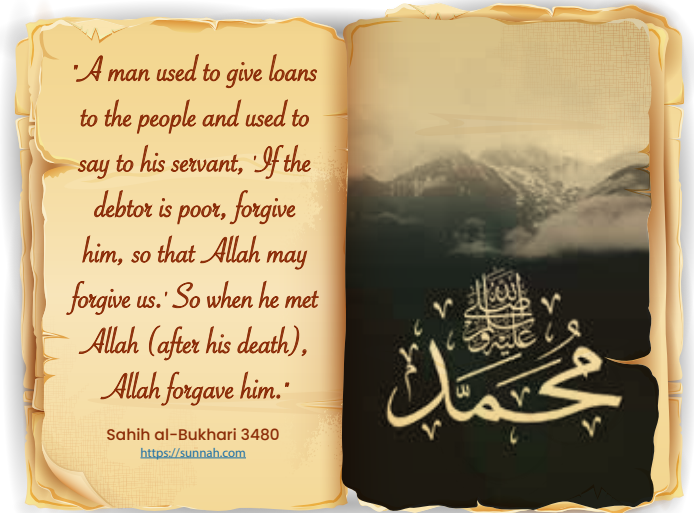 "A man used to give loans
to the people and used to
say to his servant, 'If the
debtor is poor, forgive
him, so that Allah may
forgive us.' So when he met
Allah (after his death),
Allah forgave him."
Sahih al-Bukhari 3480
https://sunnah.com
صلى الله عليه وسلم
محمد